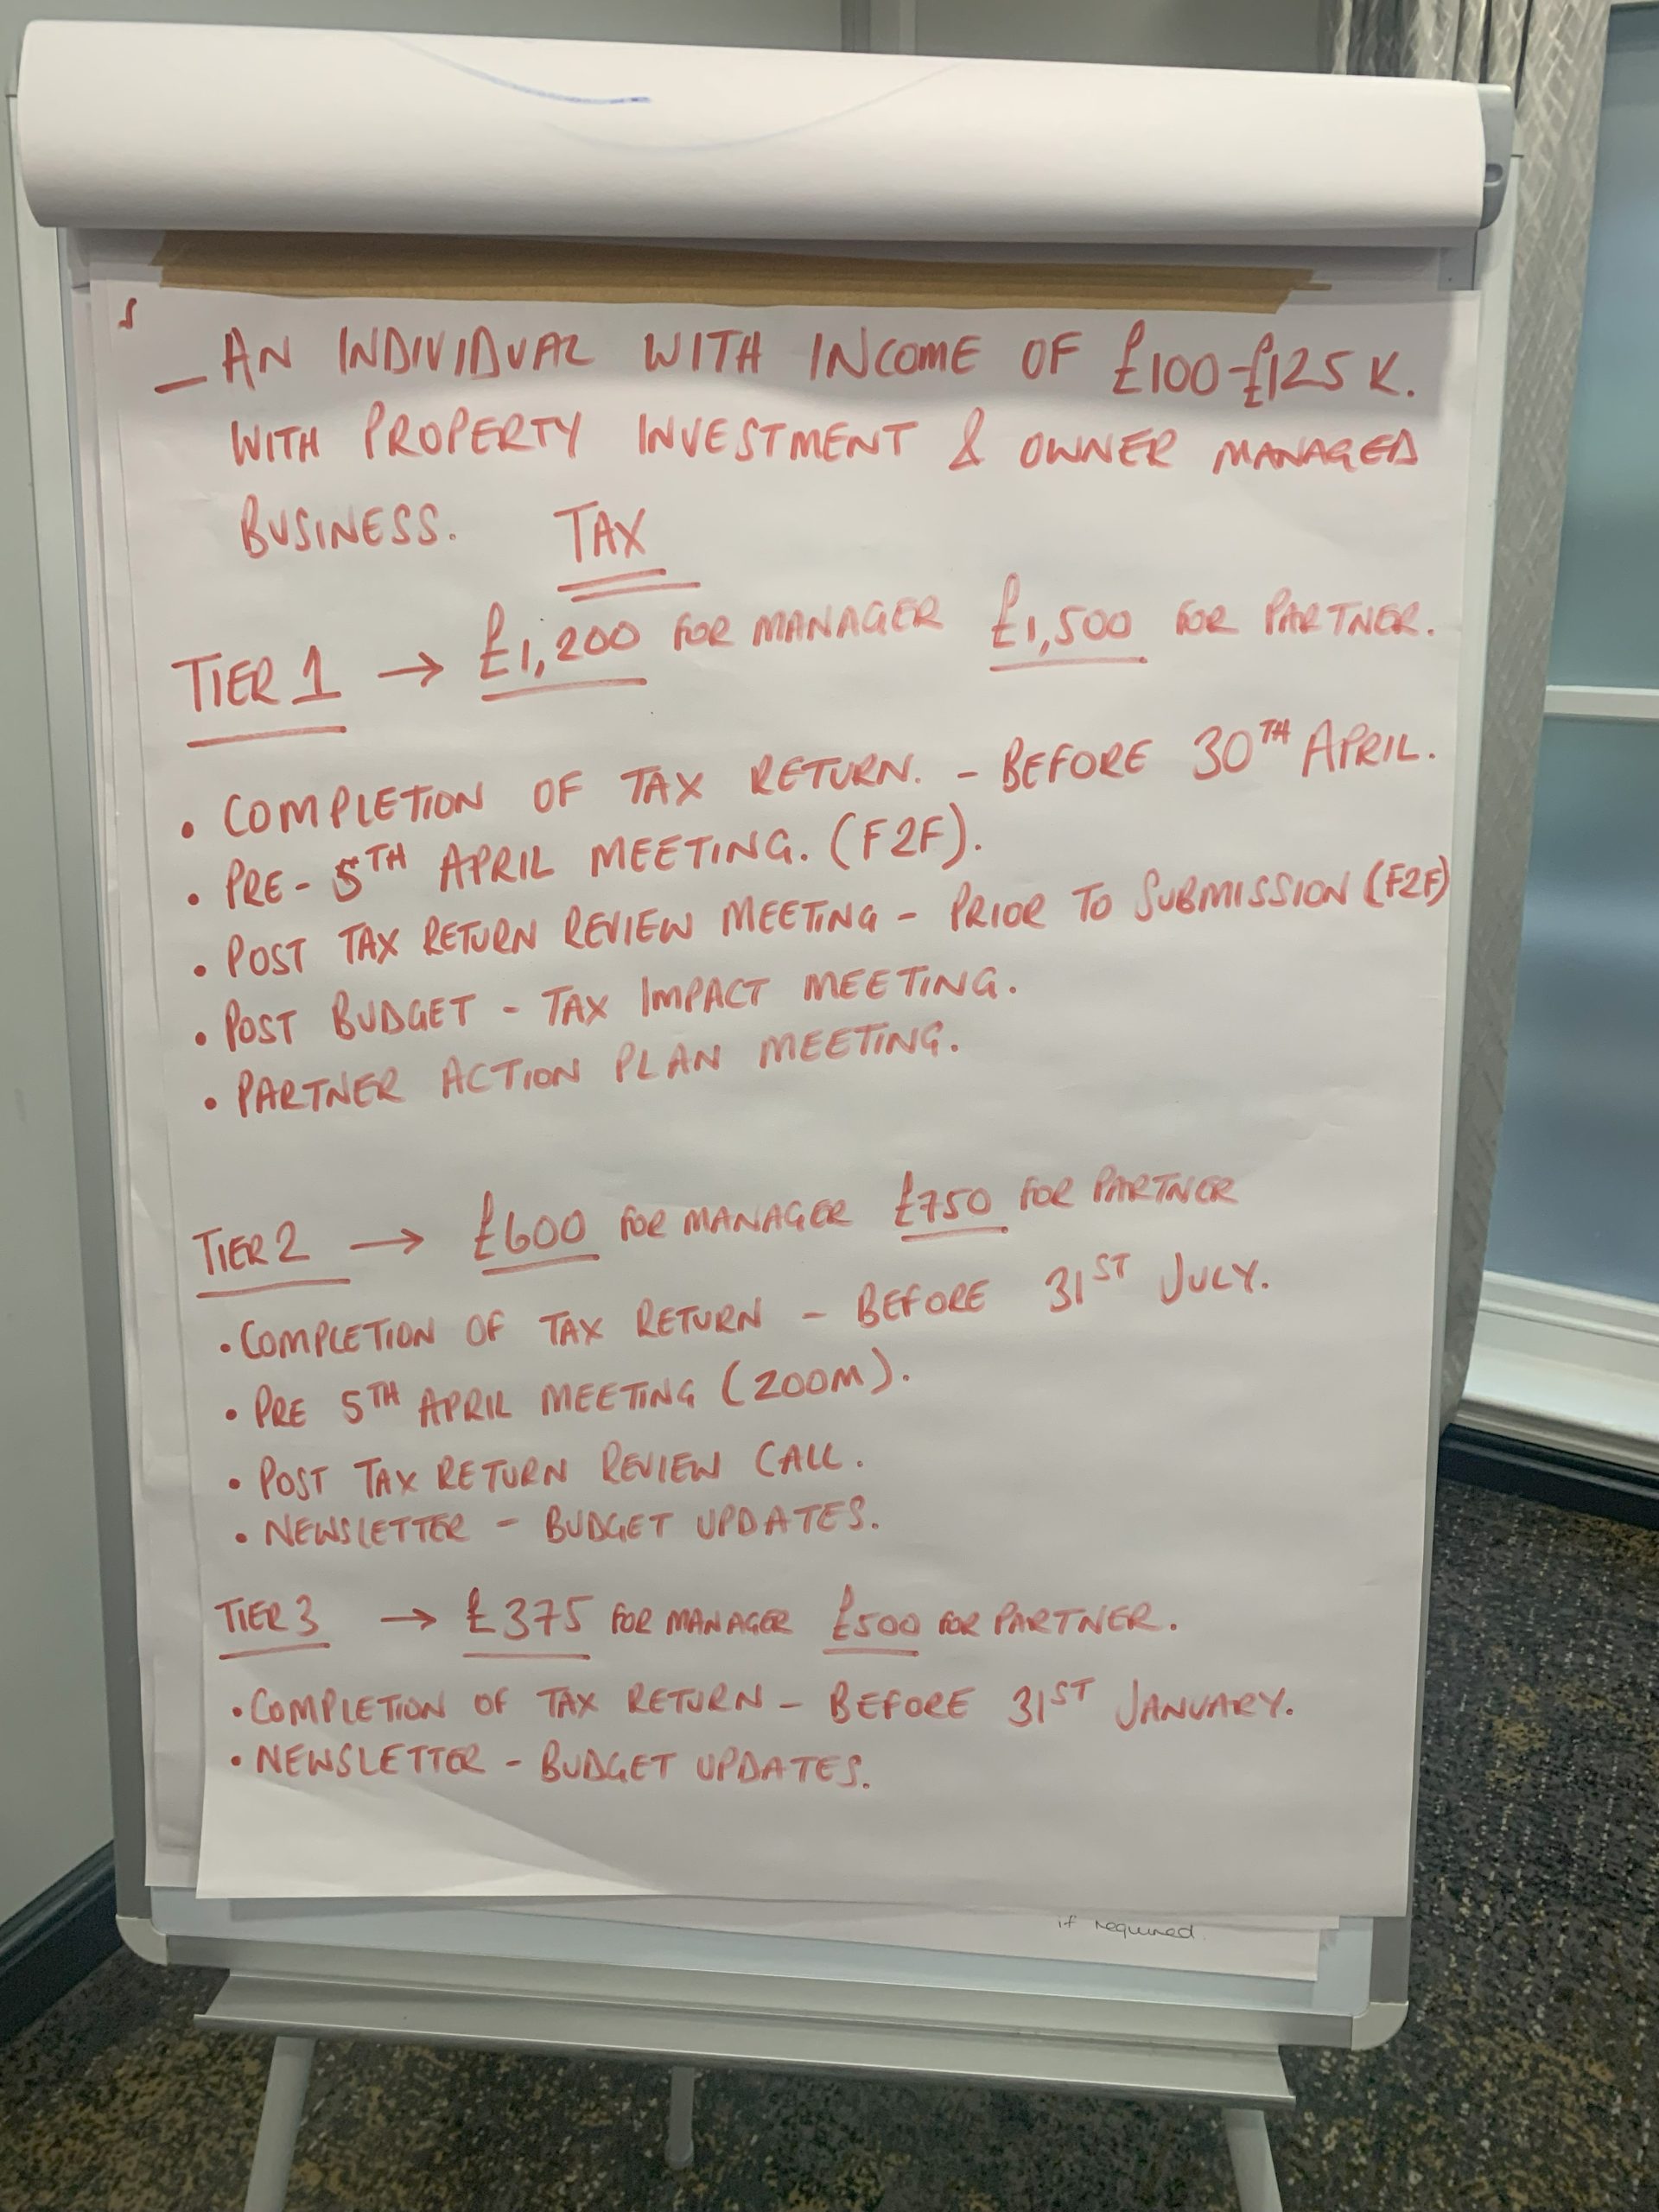 — AN INDIVIDUAL WITH INCOME OF £100-£125K.
WITH PROPERTY INVESTMENT & OWNER MANAGED
BUSINESS. TAX
TIER 1 → £1,200 FOR MANAGER £1,500 FOR PARTNER.
• COMPLETION OF TAX RETURN. - BEFORE 30TH APRIL.
• PRE-5TH APRIL MEETING. (F2F).
• POST TAX RETURN REVIEW MEETING - PRIOR TO SUBMISSION (F2F)
• POST BUDGET - TAX IMPACT MEETING.
• PARTNER ACTION PLAN MEETING.
TIER 2 → £600 FOR MANAGER £750 FOR PARTNER
• COMPLETION OF TAX RETURN - BEFORE 31ST JULY.
• PRE 5TH APRIL MEETING (ZOOM).
• POST TAX RETURN REVIEW CALL.
• NEWSLETTER - BUDGET UPDATES.
TIER 3 → £375 FOR MANAGER £500 FOR PARTNER.
• COMPLETION OF TAX RETURN - BEFORE 31ST JANUARY.
• NEWSLETTER - BUDGET UPDATES.
if required.